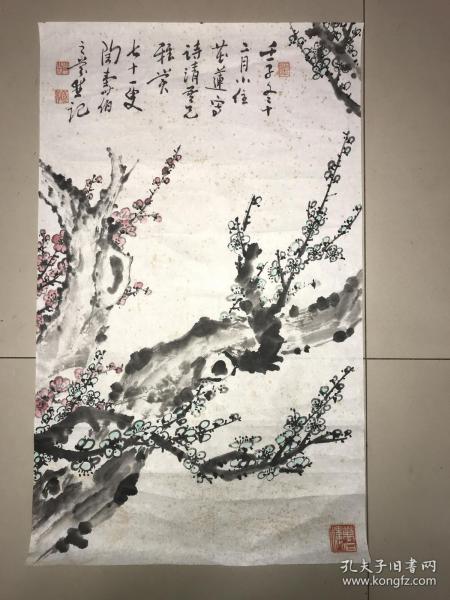 壬子冬十
二月小住
花蓮寫
詩清雲兄
雅賞
七十一叟
陶壽伯
之夢楚記
孔夫子旧书网
www.kongfz.com